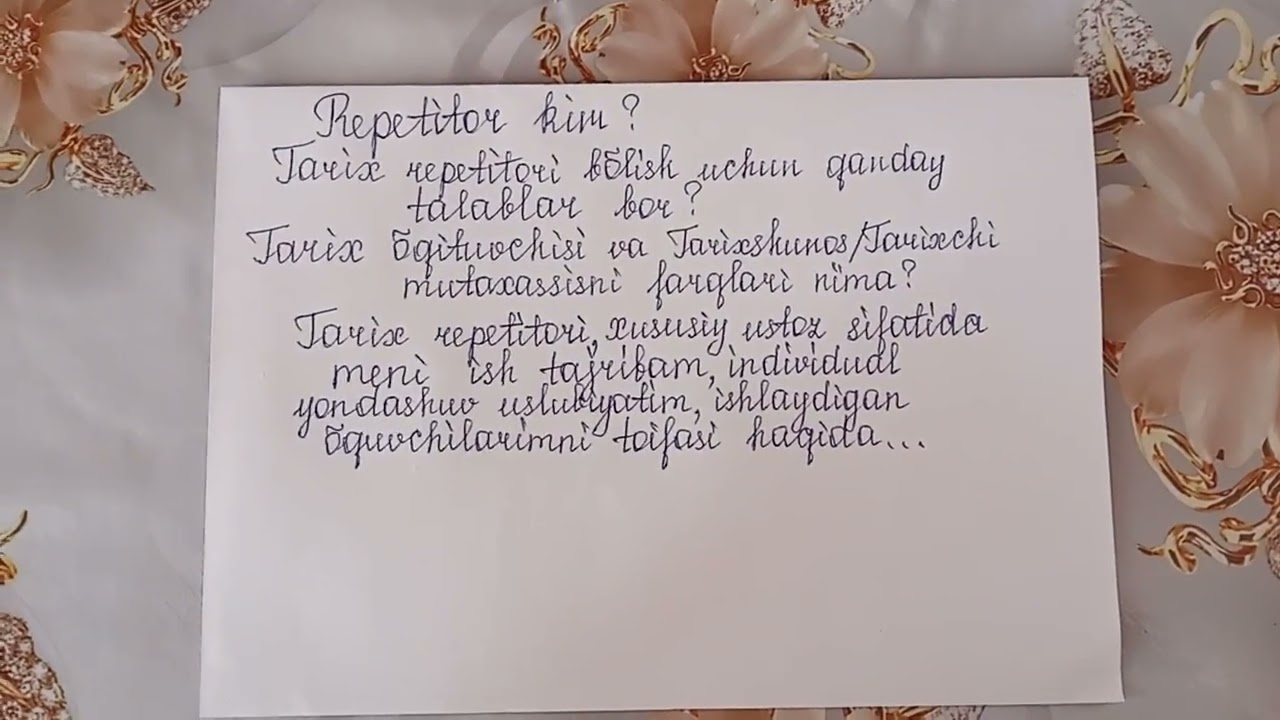 Repetitor kim?
Tarix repetitori bõlish uchun qanday
talablar bor?
Tarix õqituvchisi va Tarixshunos/Tarixchi
mutaxassisni farqlari nima?
Tarix repetitori, xususiy ustoz sifatida
meni ish tajribam, individual
yondashuv uslubiyatim, ishlaydigan
õquvchilarimni toifasi haqida...